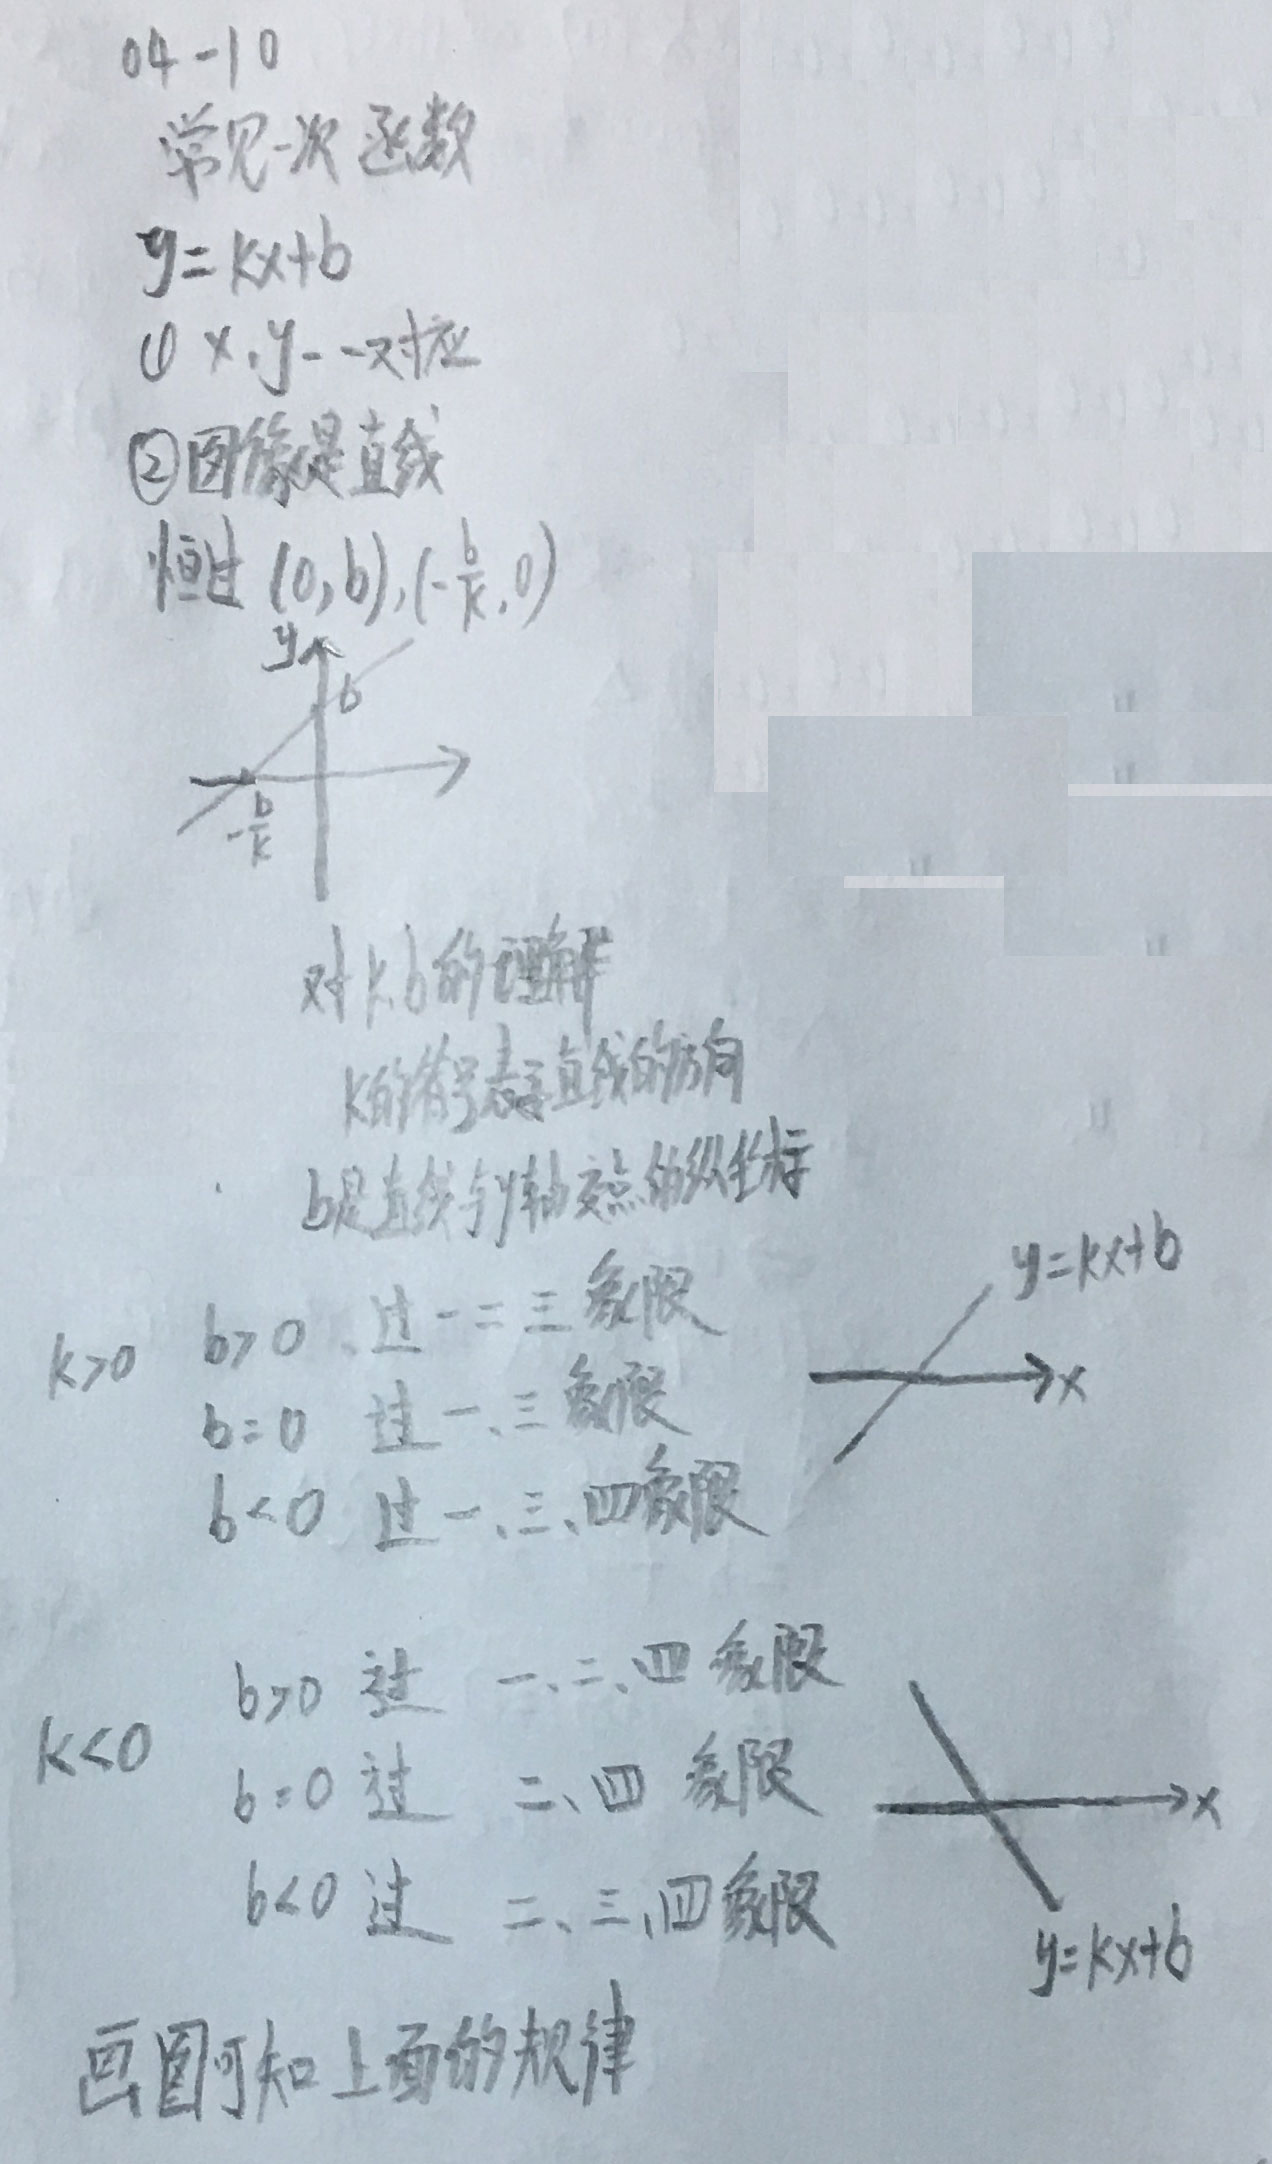 04-10
常见一次函数
y=kx+b
① x、y一一对应
②图像是直线
恒过(0,b),(-b/k,0)
y
b
-b/k
对k、b的理解
k的符号表示直线的方向
b是直线与y轴交点的纵坐标
y=kx+b
x
k>0
b>0 过一二三象限
b=0 过一、三象限
b<0 过一、三、四象限
k<0
b>0 过 一、二、四象限
b=0 过 二、四 象限
b<0 过 二、三、四象限
x
y=kx+b
画图可知上面的规律